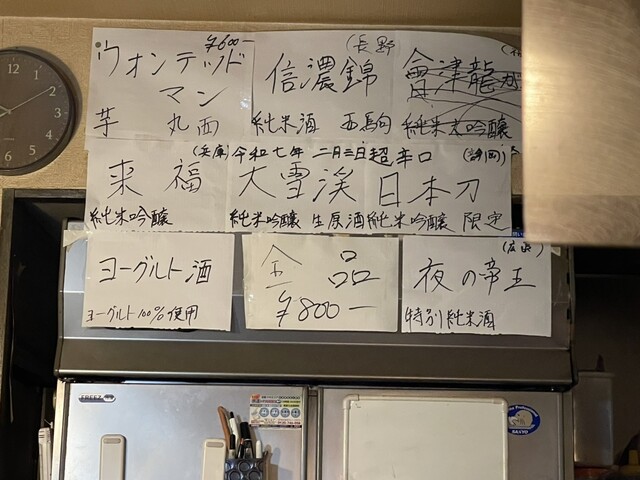 ¥600-
ウォンテッド
マン
芋 丸西
(長野
信濃錦
純米酒 西駒
會津龍が
純米大吟醸
来福
純米吟醸
(兵庫) 令和七年 二月三日
大雪渓
純米吟醸 生原酒
超辛口 (静岡)
日本刀
純米吟醸 限定
ヨーグルト酒
ヨーグルト100%使用
全品
¥800-
(広島)
夜の帝王
特別純米酒
FREEZ
SANYO
12
11
10
9
8
7
6
5
4
3
2
1